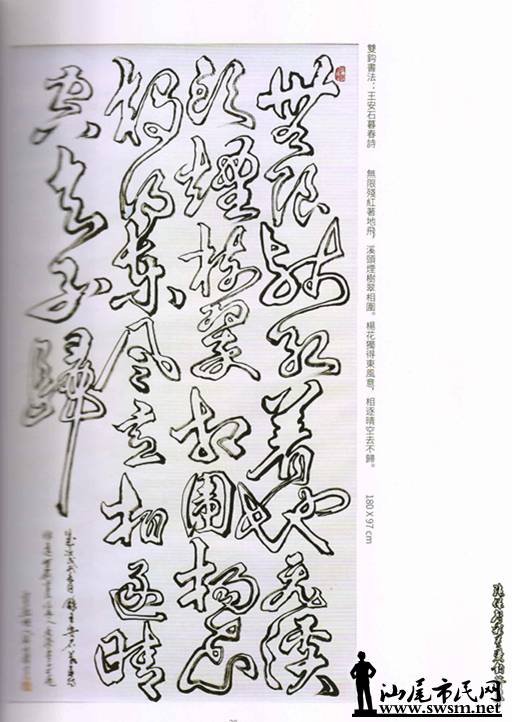 雙鈎書法：王安石暮春詩　無限殘紅著地飛，溪頭煙樹翠相圍。楊花獨得東風意，相逐晴空去不歸。　180 X 97 cm
無限殘紅著地飛溪
頭煙樹翠相圍楊花
獨得東風意相逐晴
空去不歸
汕尾市民网
www.swsm.net